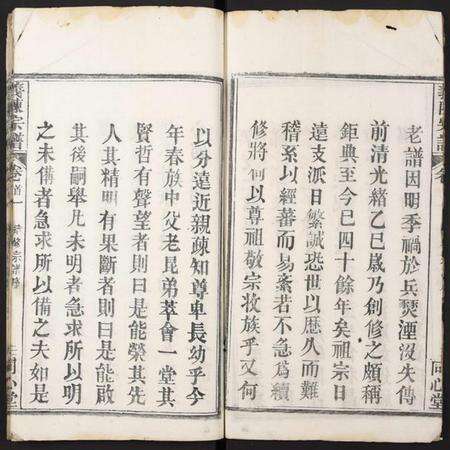 老譜因明季禍於兵燹湮沒失傳
前清光緒乙巳歲乃創修之頗稱
鉅典至今已四十餘年矣祖宗日
遠支派日繁誠恐世以歷久而難
稽系以經蕃而易紊若不急為續
修將何以尊祖敬宗收族乎又何
同心堂
義陳宗譜
卷首一
以分遠近親疎知尊卑長幼乎今
年春族中父老昆弟萃會一堂其
賢哲有聲望者則曰是能榮其先
人其精明有果斷者則曰是能啟
其後嗣舉凡未明者急求所以明
之未備者急求所以備之夫如是
同心堂